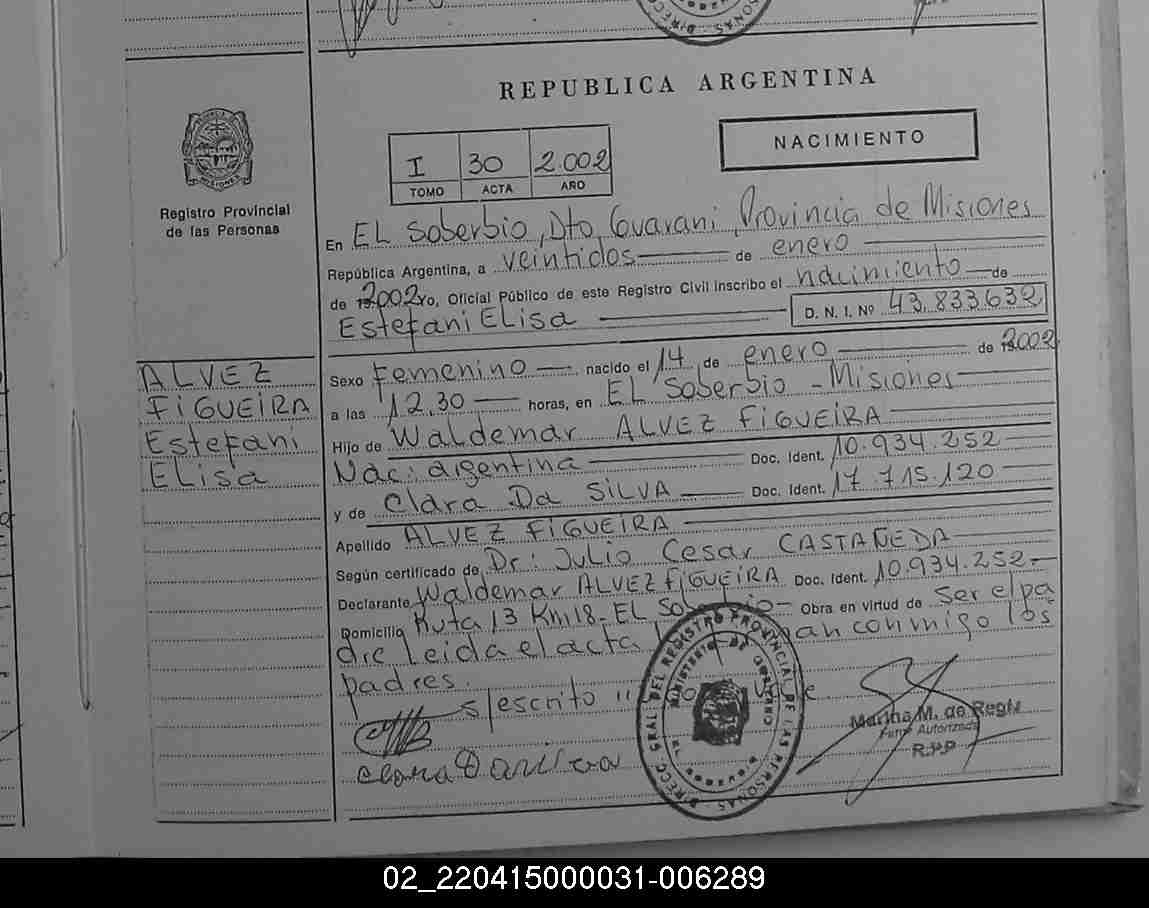 REPUBLICA ARGENTINA
PROVINCIA DE MISIONES
Registro Provincial
de las Personas
I 30 2.002
TOMO ACTA AÑO
NACIMIENTO
En EL Soberbio, Dto Guarani, Provincia de Misiones
República Argentina, a veintidos de enero
de 2002 yo, Oficial Público de este Registro Civil inscribo el nacimiento de
Estefani ELisa D. N. I. Nº 43.833.632
ALVEZ
FIGUEIRA
Estefani
ELisa
Sexo Femenino nacido el 14 de enero de 2002
a las 12.30 horas, en EL Soberbio - Misiones
Hijo de Waldemar ALVEZ FIGUEIRA
Nac: argentina Doc. Ident. 10.934.252
y de Clara Da SILVA Doc. Ident. 17.715.120
Apellido ALVEZ FIGUEIRA
Según certificado de Dr: Julio Cesar CASTAÑEDA
Declarante Waldemar ALVEZ FIGUEIRA Doc. Ident. 10.934.252-
Domicilio Ruta 13 Km 18- EL Soberbio- Obra en virtud de ser el pa
dre Leida el acta conmigo los
padres. s/escrito
DIRECC. GRAL. DEL REGISTRO PROVINCIAL DE LAS PERSONAS
MINISTERIO DE GOBIERNO
Marina M. de Regly
Firma Autorizada
R.P.P
02_220415000031-006289